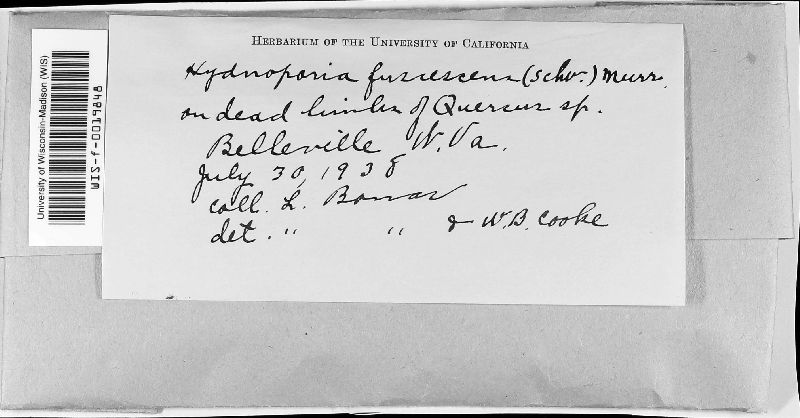 HERBARIUM OF THE UNIVERSITY OF CALIFORNIA
Hydnoporia fuscescens (Schw.) Murr.
on dead limbs of Quercus sp.
Belleville W. Va.
July 30, 1938
coll. L. Bonar
det. " " & W.B. Cooke
University of Wisconsin-Madison (WIS)
WIS-f-0019848